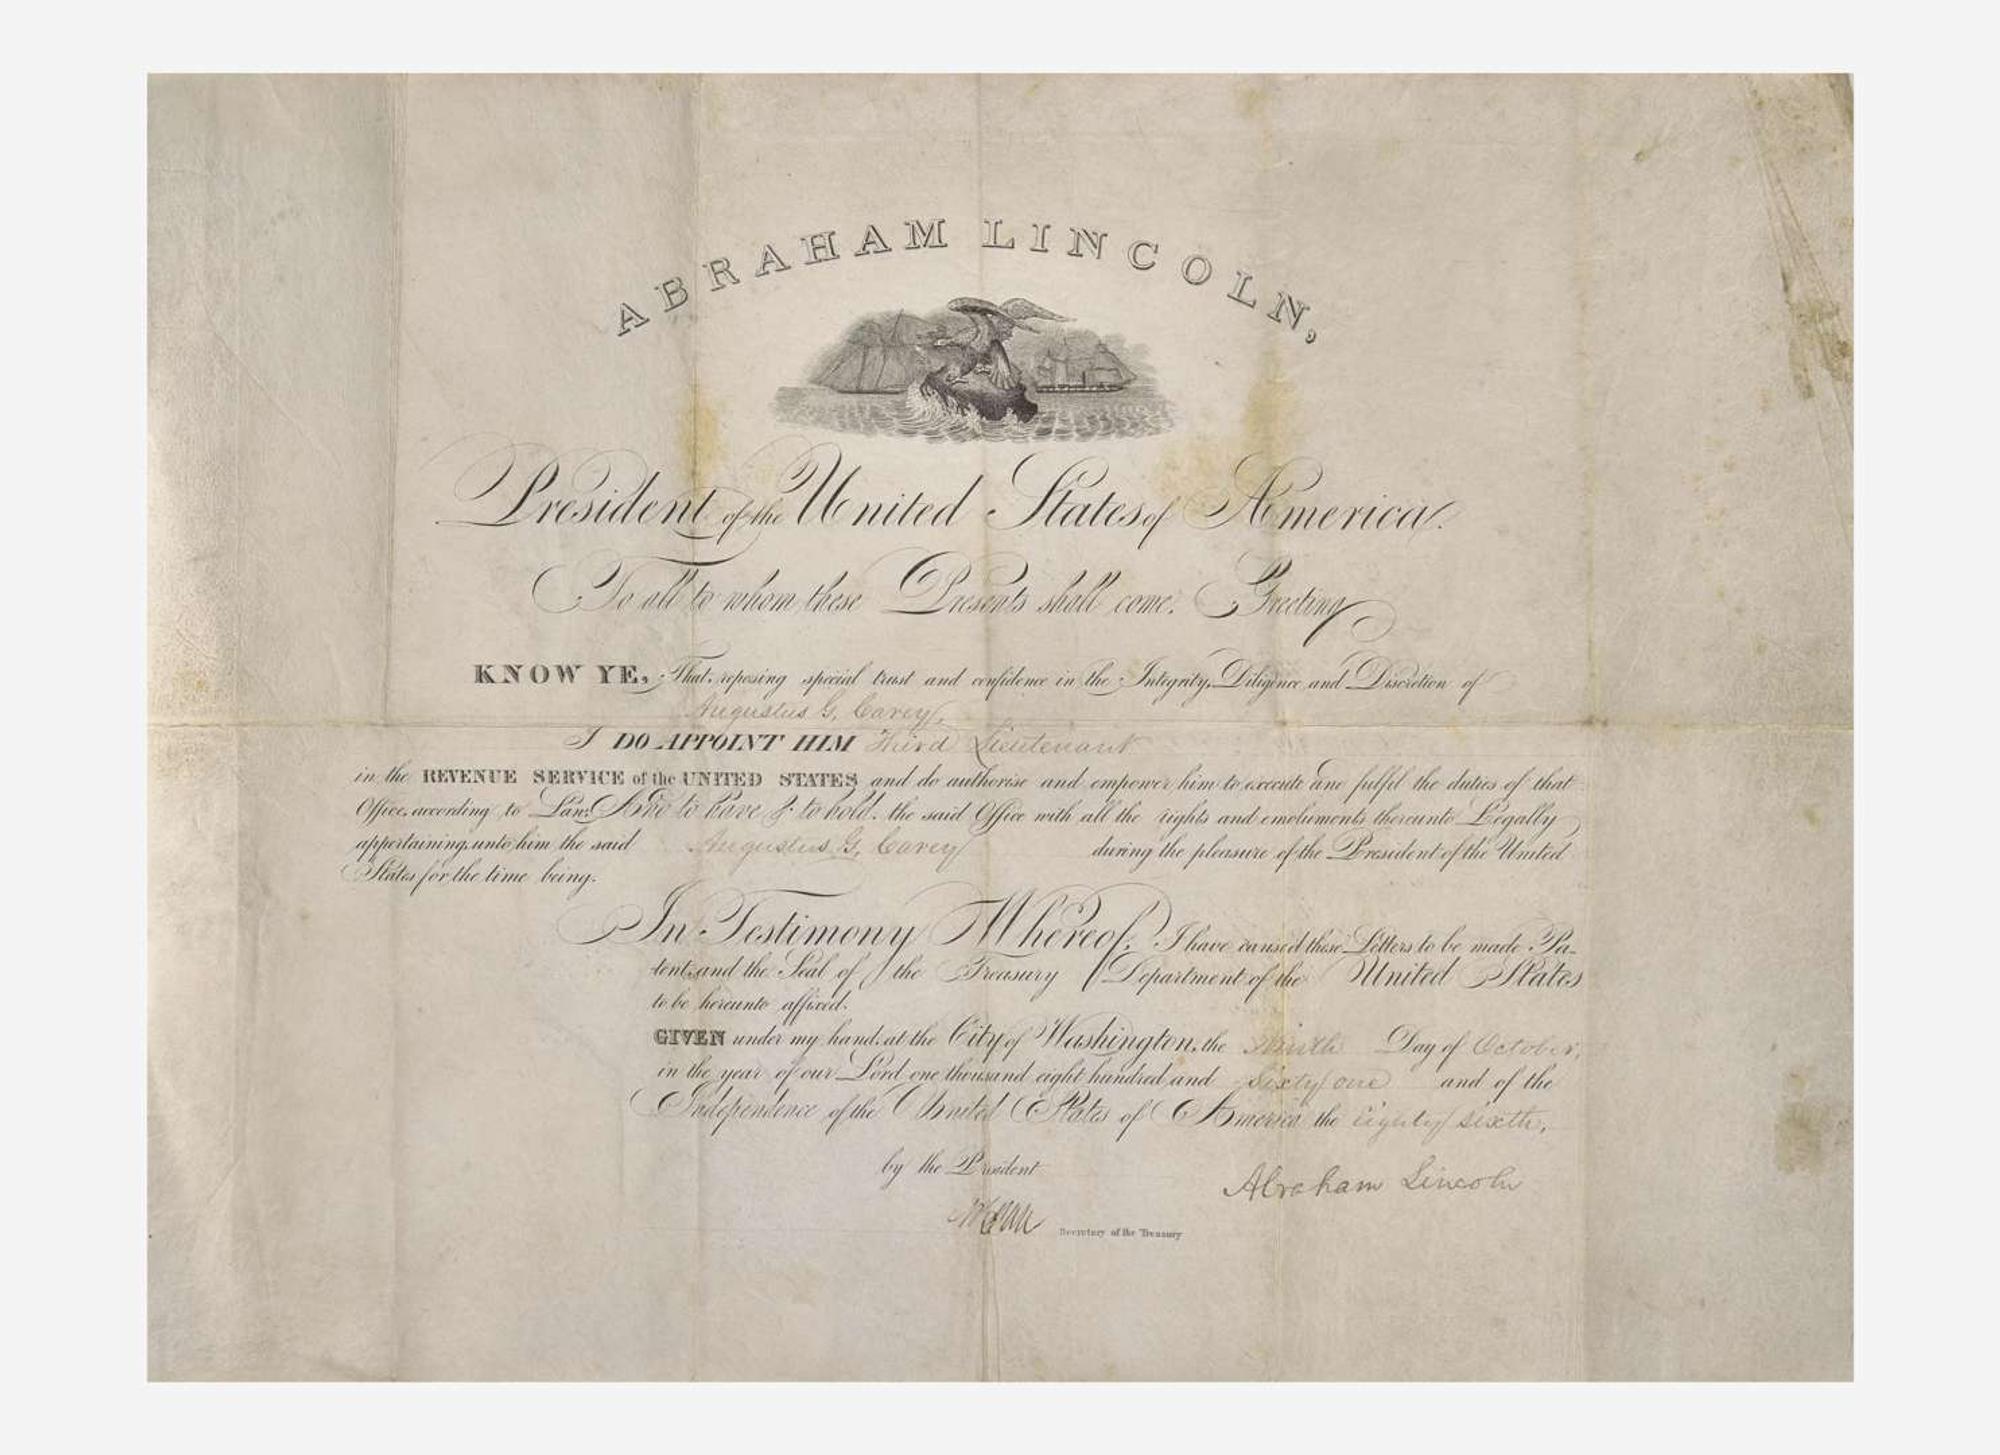 ABRAHAM LINCOLN,
President of the United States of America.
To all to whom these Presents shall come. Greeting
KNOW YE, That reposing special trust and confidence in the Integrity, Diligence and Discretion of
Augustus G. Carey,
I DO APPOINT HIM Third Lieutenant
in the REVENUE SERVICE of the UNITED STATES and do authorise and empower him to execute and fulfil the duties of that
Office, according to Law: And to have & to hold. the said Office with all the rights and emoluments thereunto Legally
appertaining, unto him the said Augustus G. Carey during the pleasure of the President of the United
States for the time being.
In Testimony Whereof, I have caused these Letters to be made Pa-
tent, and the Seal of the Treasury Department of the United States
to be hereunto affixed.
GIVEN under my hand, at the City of Washington, the Ninth Day of October,
in the year of our Lord one thousand eight hundred and Sixty one and of the
Independence of the United States of America the Eighty Sixth.
by the President
Abraham Lincoln
Secretary of the Treasury